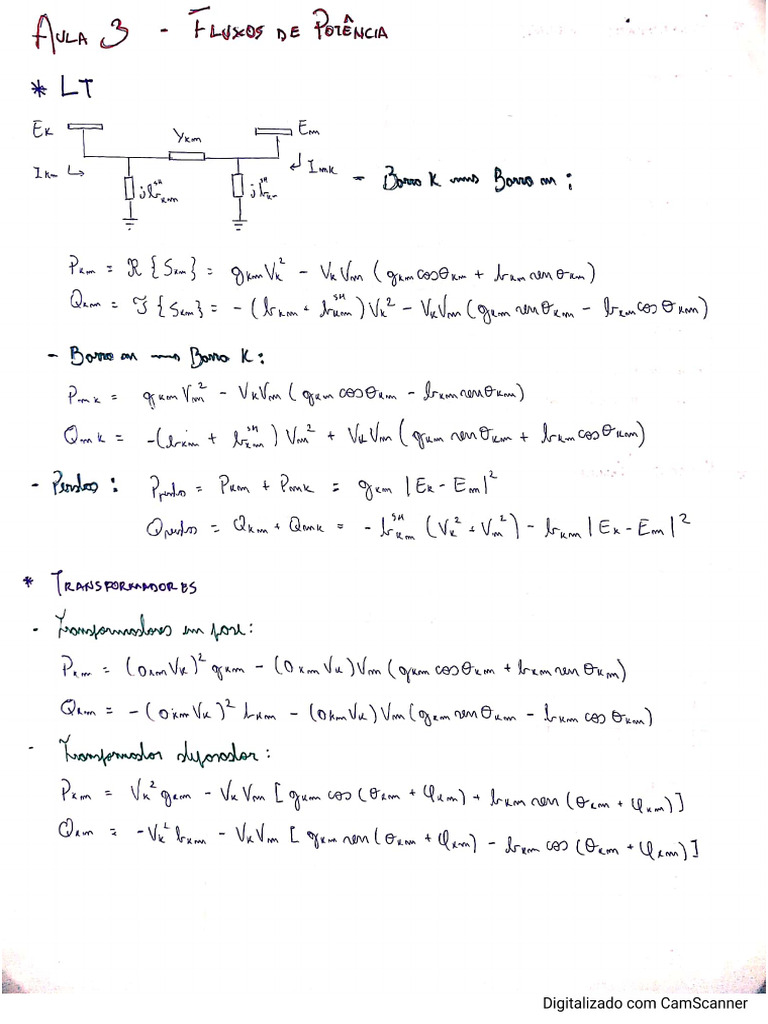 AULA 3 - FLUXOS DE POTÊNCIA
* LT
E_k y_km E_m
I_km jb^sh_km jb^sh_km I_mk - Barra k → Barra m:
P_km = ℜ{S_km} = g_km V_k² - V_k V_m (g_km cos θ_km + b_km sen θ_km)
Q_km = ℑ{S_km} = -(b_km + b^sh_km) V_k² - V_k V_m (g_km sen θ_km - b_km cos θ_km)
- Barra m → Barra k:
P_mk = g_km V_m² - V_k V_m (g_km cos θ_km - b_km sen θ_km)
Q_mk = -(b_km + b^sh_km) V_m² + V_k V_m (g_km sen θ_km + b_km cos θ_km)
- Perdas: P_perdas = P_km + P_mk = g_km |E_k - E_m|²
Q_perdas = Q_km + Q_mk = -b^sh_km (V_k² + V_m²) - b_km |E_k - E_m|²
* TRANSFORMADORES
- Transformadores em fase:
P_km = (a_km V_k)² g_km - (a_km V_k) V_m (g_km cos θ_km + b_km sen θ_km)
Q_km = -(a_km V_k)² b_km - (a_km V_k) V_m (g_km sen θ_km - b_km cos θ_km)
- Transformador defasador:
P_km = V_k² g_km - V_k V_m [g_km cos (θ_km + φ_km) + b_km sen (θ_km + φ_km)]
Q_km = -V_k² b_km - V_k V_m [g_km sen (θ_km + φ_km) - b_km cos (θ_km + φ_km)]
Digitalizado com CamScanner